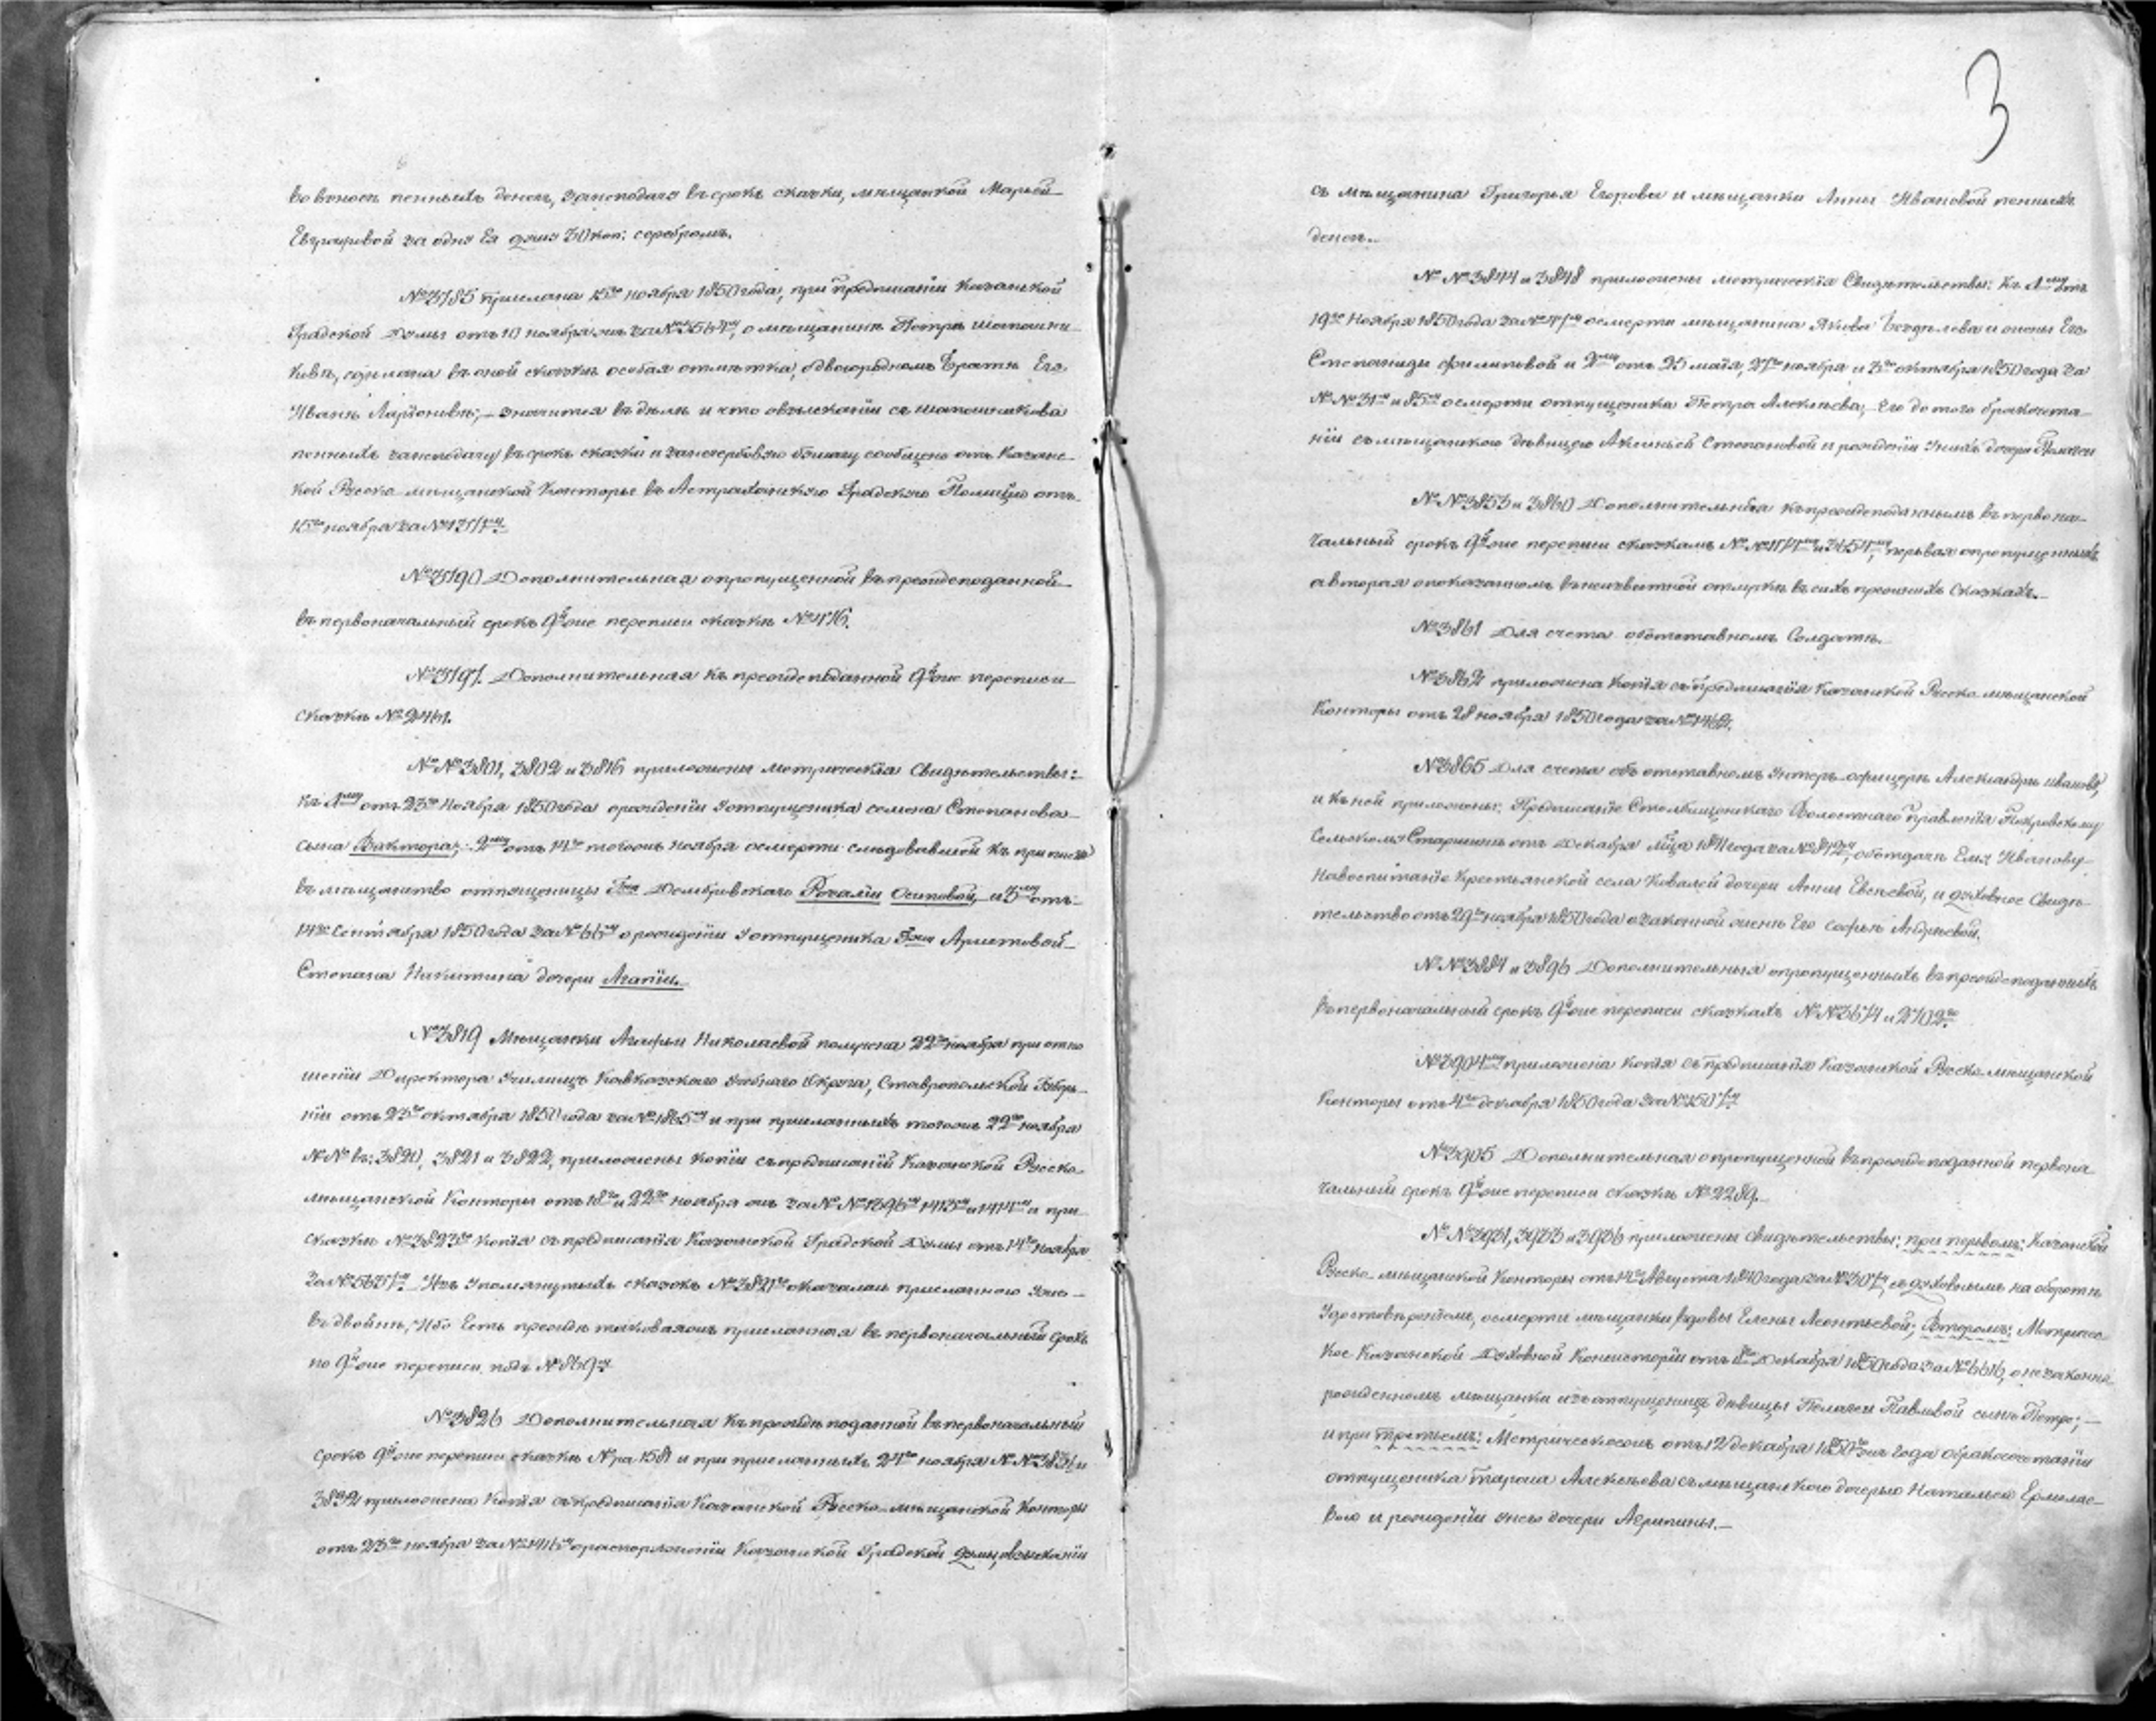 во взносъ пенныхъ денегъ, занеподачу въ срокъ сказки, мѣщанкой Марьей
Евграфовой за одну Ея душу 30 коп: серебромъ.
№ прислана 15го ноября 1850 года, при предписаніи Казанской
Градской Думы отъ 10 ноября о мѣщанинѣ Петрѣ Шапошни-
ковѣ, сдѣлана въ оной сказкѣ особая отмѣтка, о двоюродномъ братѣ Его
Иванѣ Ларіоновѣ, значится въ дѣлѣ и что о взысканіи съ Шапошникова
пенныхъ занеподачу въ срокъ сказки и за негербовую бумагу сообщено отъ Казанс-
кой Русско-мѣщанской Конторы въ Астраханскую Градскую Полицію отъ
15го ноября за №
Дополнительная о пропущенной въ преждеподанной
въ первоначальный срокъ 9й ние переписи сказкѣ
Дополнительная къ преждеподанной 9й ние переписи
сказкѣ
№№ 3801, 3802 и 3816 приложены метрическія Свидѣтельствы:
къ 1му отъ 23го Ноября 1850 года о рожденіи у отпущеника Семена Степанова
сына Виктора; 2му отъ 14го тогожъ ноября о смерти слѣдовавшей къ приписке
въ мѣщанство отпущеницы Гжи Домбровскаго Розаліи Осиповой, и 3му отъ
14го Сентября 1850 года за № 66 о рожденіи у отпущеника Гжи Аристовой
Степана Никитина дочери Агапіи.
№ 3819 Мѣщанки Агафьи Николаевой получена 22го ноября при отно
шеніи Директора Училищъ Кавказскаго Учебнаго Округа, Ставропольской Губер-
ніи отъ 23го октября 1850 года за № 1865 и при присланныхъ тогожъ 22го ноября
№№ въ: 3820, 3821 и 3822, приложены копіи съ предписаній Казанской Русско-
мѣщанской Конторы отъ 18го и 22го ноября жъ за №№ 1396 1413 и 1414 и при
сказки № 3823 копія съ предписанія Казанской Градской Думы отъ 14го ноября
за № Изъ упомянутыхъ сказокъ № 3821 оказалась присланною уже
въ двойнѣ, ибо Есть прежде таковаяжъ присланная въ первоначальный срокъ
по 9й ние переписи подъ № 869
№ 3826 Дополнительная къ прежде поданной въ первоначальный
срокъ 9й ние переписи сказки № ра 1581 и при присланныхъ 24го ноября №№ 3831 и
3832 приложена копія съ предписанія Казанской Русско-мѣщанской Конторы
отъ 23го ноября за № 1416 о распоряженіи Казанской Градской Думы, о взысканіи
3
съ мѣщанина Григорья Егорова и мѣщанки Анны Ивановой пенныхъ
денегъ.
№№ 3844 и 3848 приложены метрическія Свидѣтельствы: къ 1му отъ
19го Ноября 1850 года за № о смерти мѣщанина Якова и жены Его
Степаниды Филиповой и 2му отъ 25 маія, ноября и 3го октября 1850 года за
№№ 31 и 85 о смерти отпущеника Петра Алексѣева, Его до того бракочета-
ніи съ мѣщанкою дѣвицею Аксиньей Степановой и рожденіи у нихъ дочери Пелагеи
№№ 3853 и 3860 Дополнительныя къ преждеподаннымъ въ первона-
чальный срокъ 9й ние переписи сказкамъ №№ первая о пропущенныхъ
а вторая о показанномъ въ неизвѣстной отлучкѣ въ сихъ прежнихъ сказкахъ.
№ 3861 Для счета объ отставномъ Солдатѣ.
№ 3862 приложена копія съ предписанія Казанской Русско мѣщанской
Конторы отъ 28 ноября 1850 года за №
№ 3865 Для счета объ отставномъ Унтеръ-офицерѣ Александрѣ Ивановѣ,
и къ ней приложены: Предписаніе Столбищенскаго Волостнаго Правленія Покровскому
Сельскому Старшинѣ отъ Декабря м-ца года за № объ отдачѣ Ему Иванову
на воспитаніе крестьянской села Ковалей дочери Анны Евсѣевой, и духовное Свидѣ-
тельство отъ 29го ноября 1850 года о законной женѣ Его Софьѣ Андреевой.
№№ 3884 и 3896 Дополнительныя о пропущенныхъ въ преждеподанныхъ
въ первоначальный срокъ 9й ние переписи сказкахъ №№ 3674 и 2702
№ 3904 приложена копія съ предписанія Казанской Русско-мѣщанской
Конторы отъ 4го декабря 1850 года за № 1507
№ 3905 Дополнительная о пропущенной въ преждеподанной первона
чальный срокъ 9й ние переписи сказкѣ № 2289.
№№ 3931, 3933 и 3936 приложены свидѣтельствы: при первомъ: Казанской
Русско-мѣщанской Конторы отъ 14го Августа 1840 года за № съ духовнымъ на оборотѣ
удостовѣреніемъ, о смерти мѣщанки вдовы Елены Леонтьевой; Второмъ: Метричес
кое Казанской Духовной Консисторіи отъ Декабря 1850 года за № 6616, о незаконно
рожденномъ мѣщанки изъ отпущеницъ дѣвицы Пелагеи Павловой сынѣ Петре;
и при третьемъ: Метрическоежъ отъ 12 декабря 1850 жъ года о бракосочетаніи
отпущеника Тараса Алексѣева съ мѣщанскою дочерью Натальей Ермолае-
вою и рожденіи у него дочери Агрипины.